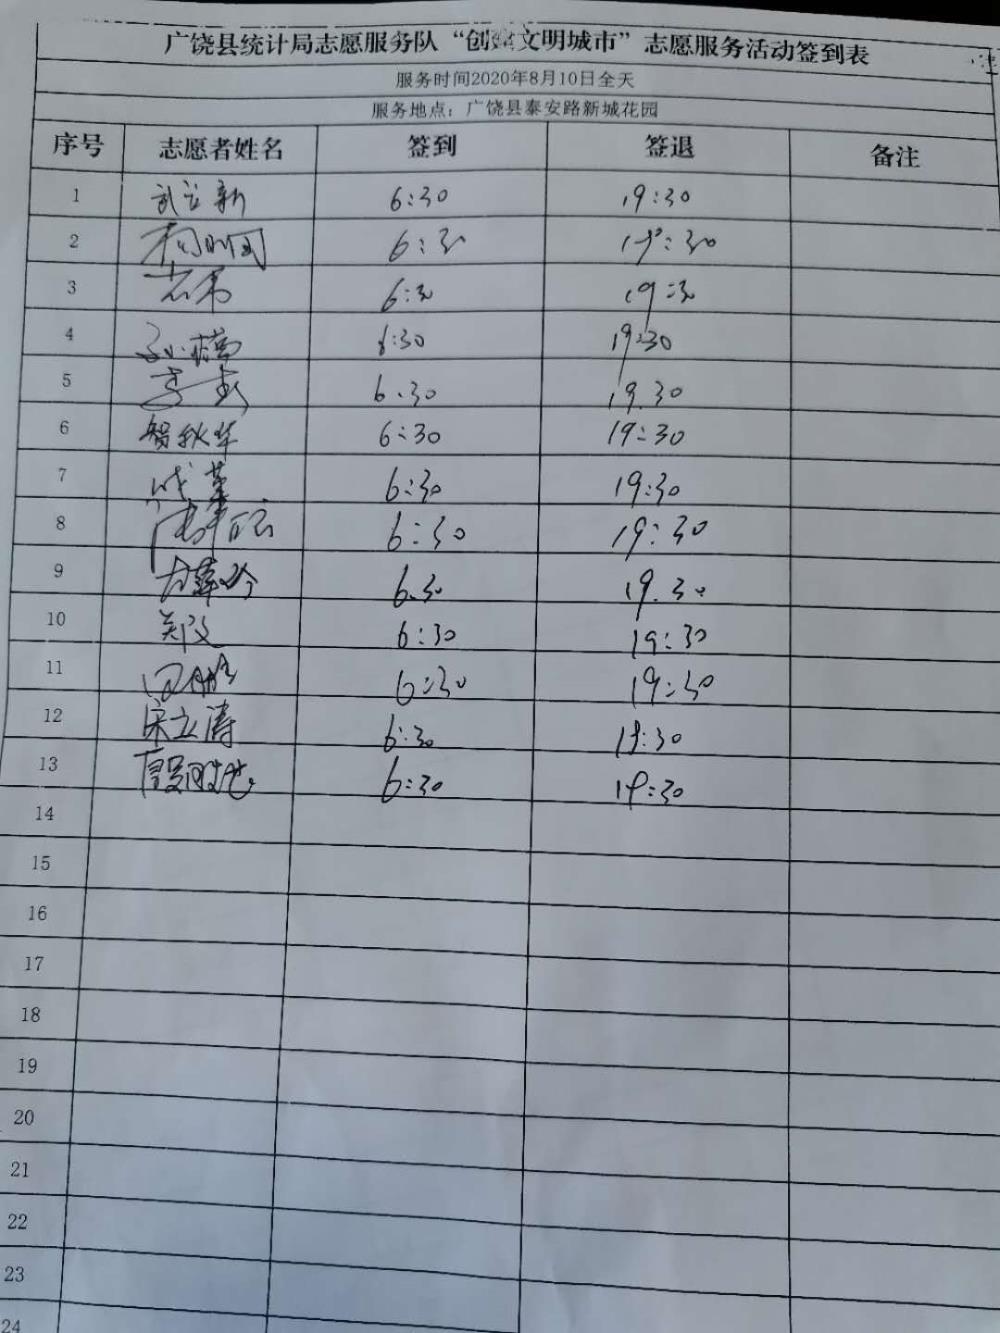 广饶县统计局志愿服务队“创建文明城市”志愿服务活动签到表
服务时间2020年8月10日全天
服务地点：广饶县泰安路新城花园
序号 志愿者姓名 签到 签退 备注
1 武立新 6:30 19:30
2 6:30 19:30
3 6:30 19:30
4 6:30 19:30
5 6.30 19.30
6 贺秋华 6:30 19:30
7 6:30 19:30
8 6:30 19:30
9 6.30 19.30
10 郑文 6:30 19:30
11 6:30 19:30
12 宋立涛 6:30 19:30
13 6:30 19:30
14
15
16
17
18
19
20
21
22
23
24